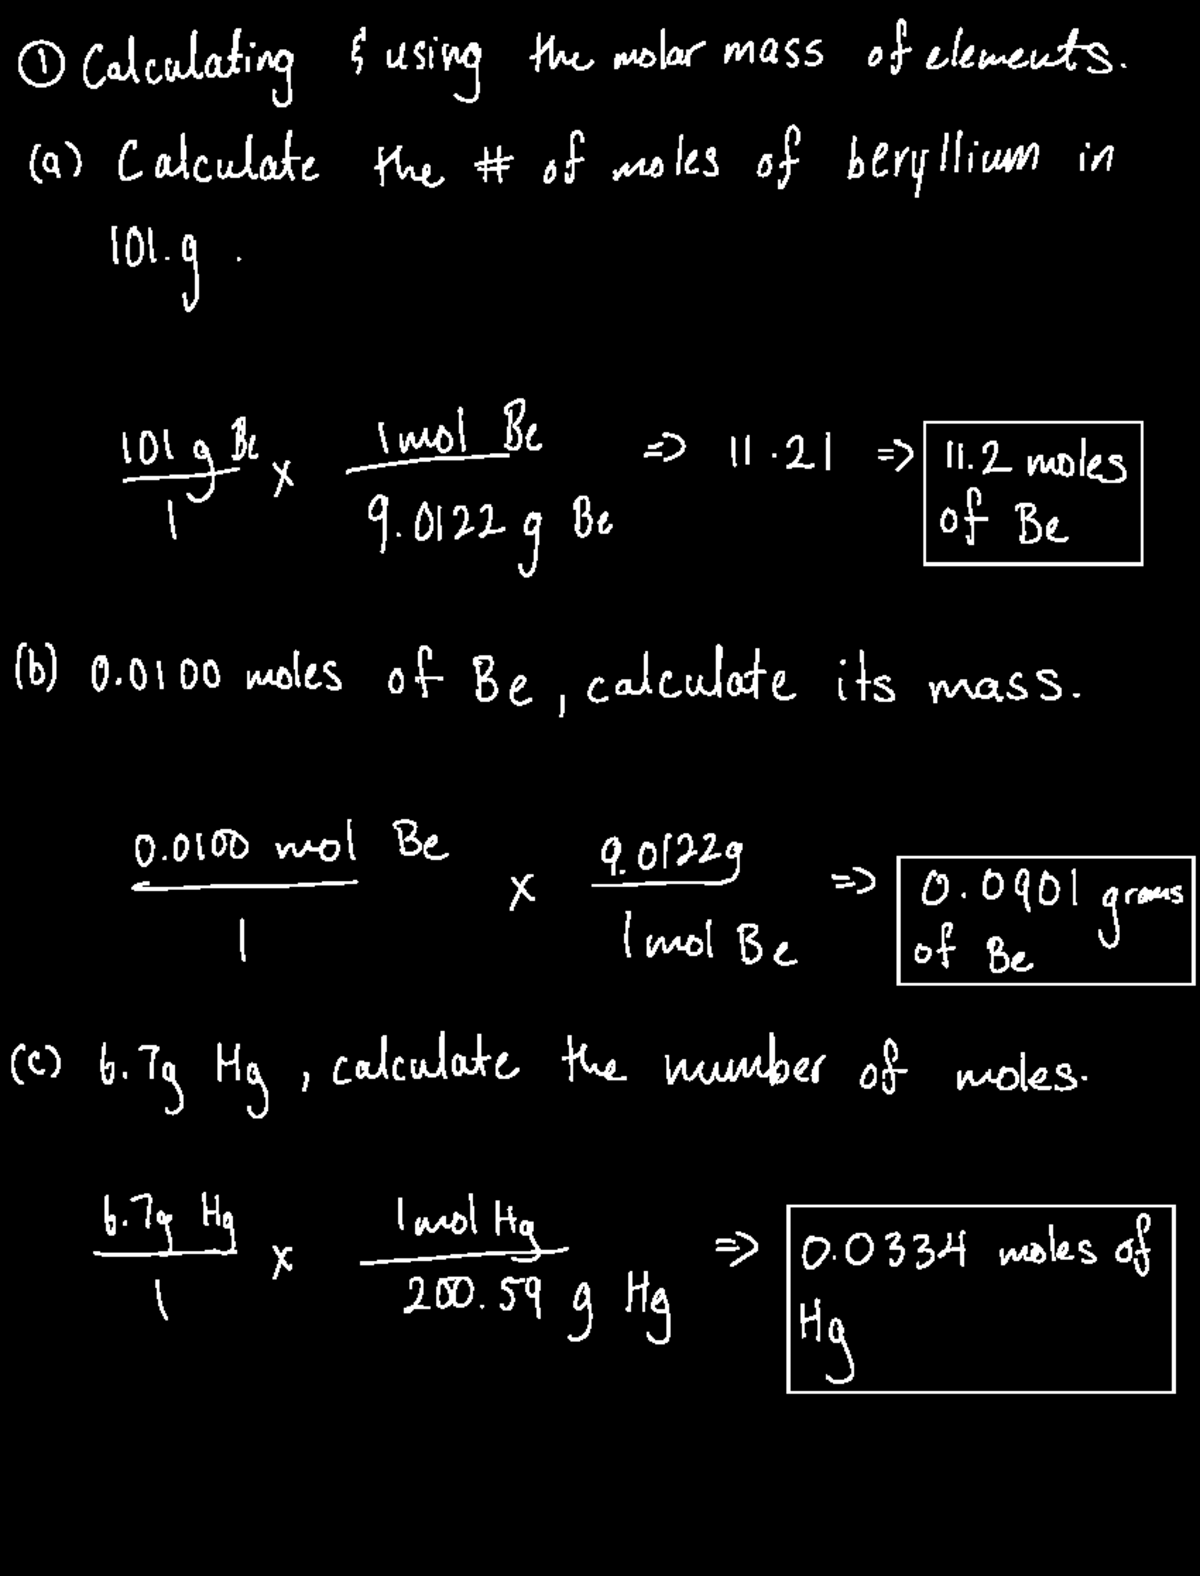 ① Calculating & using the molar mass of elements.
(a) Calculate the # of moles of beryllium in
101.g.
101 g Be / 1 x 1 mol Be / 9.0122 g Be => 11.21 => 11.2 moles of Be
(b) 0.0100 moles of Be, calculate its mass.
0.0100 mol Be / 1 x 9.0122g / 1 mol Be => 0.0901 grams of Be
(c) 6.7g Hg, calculate the number of moles.
6.7g Hg / 1 x 1 mol Hg / 200.59 g Hg => 0.0334 moles of Hg